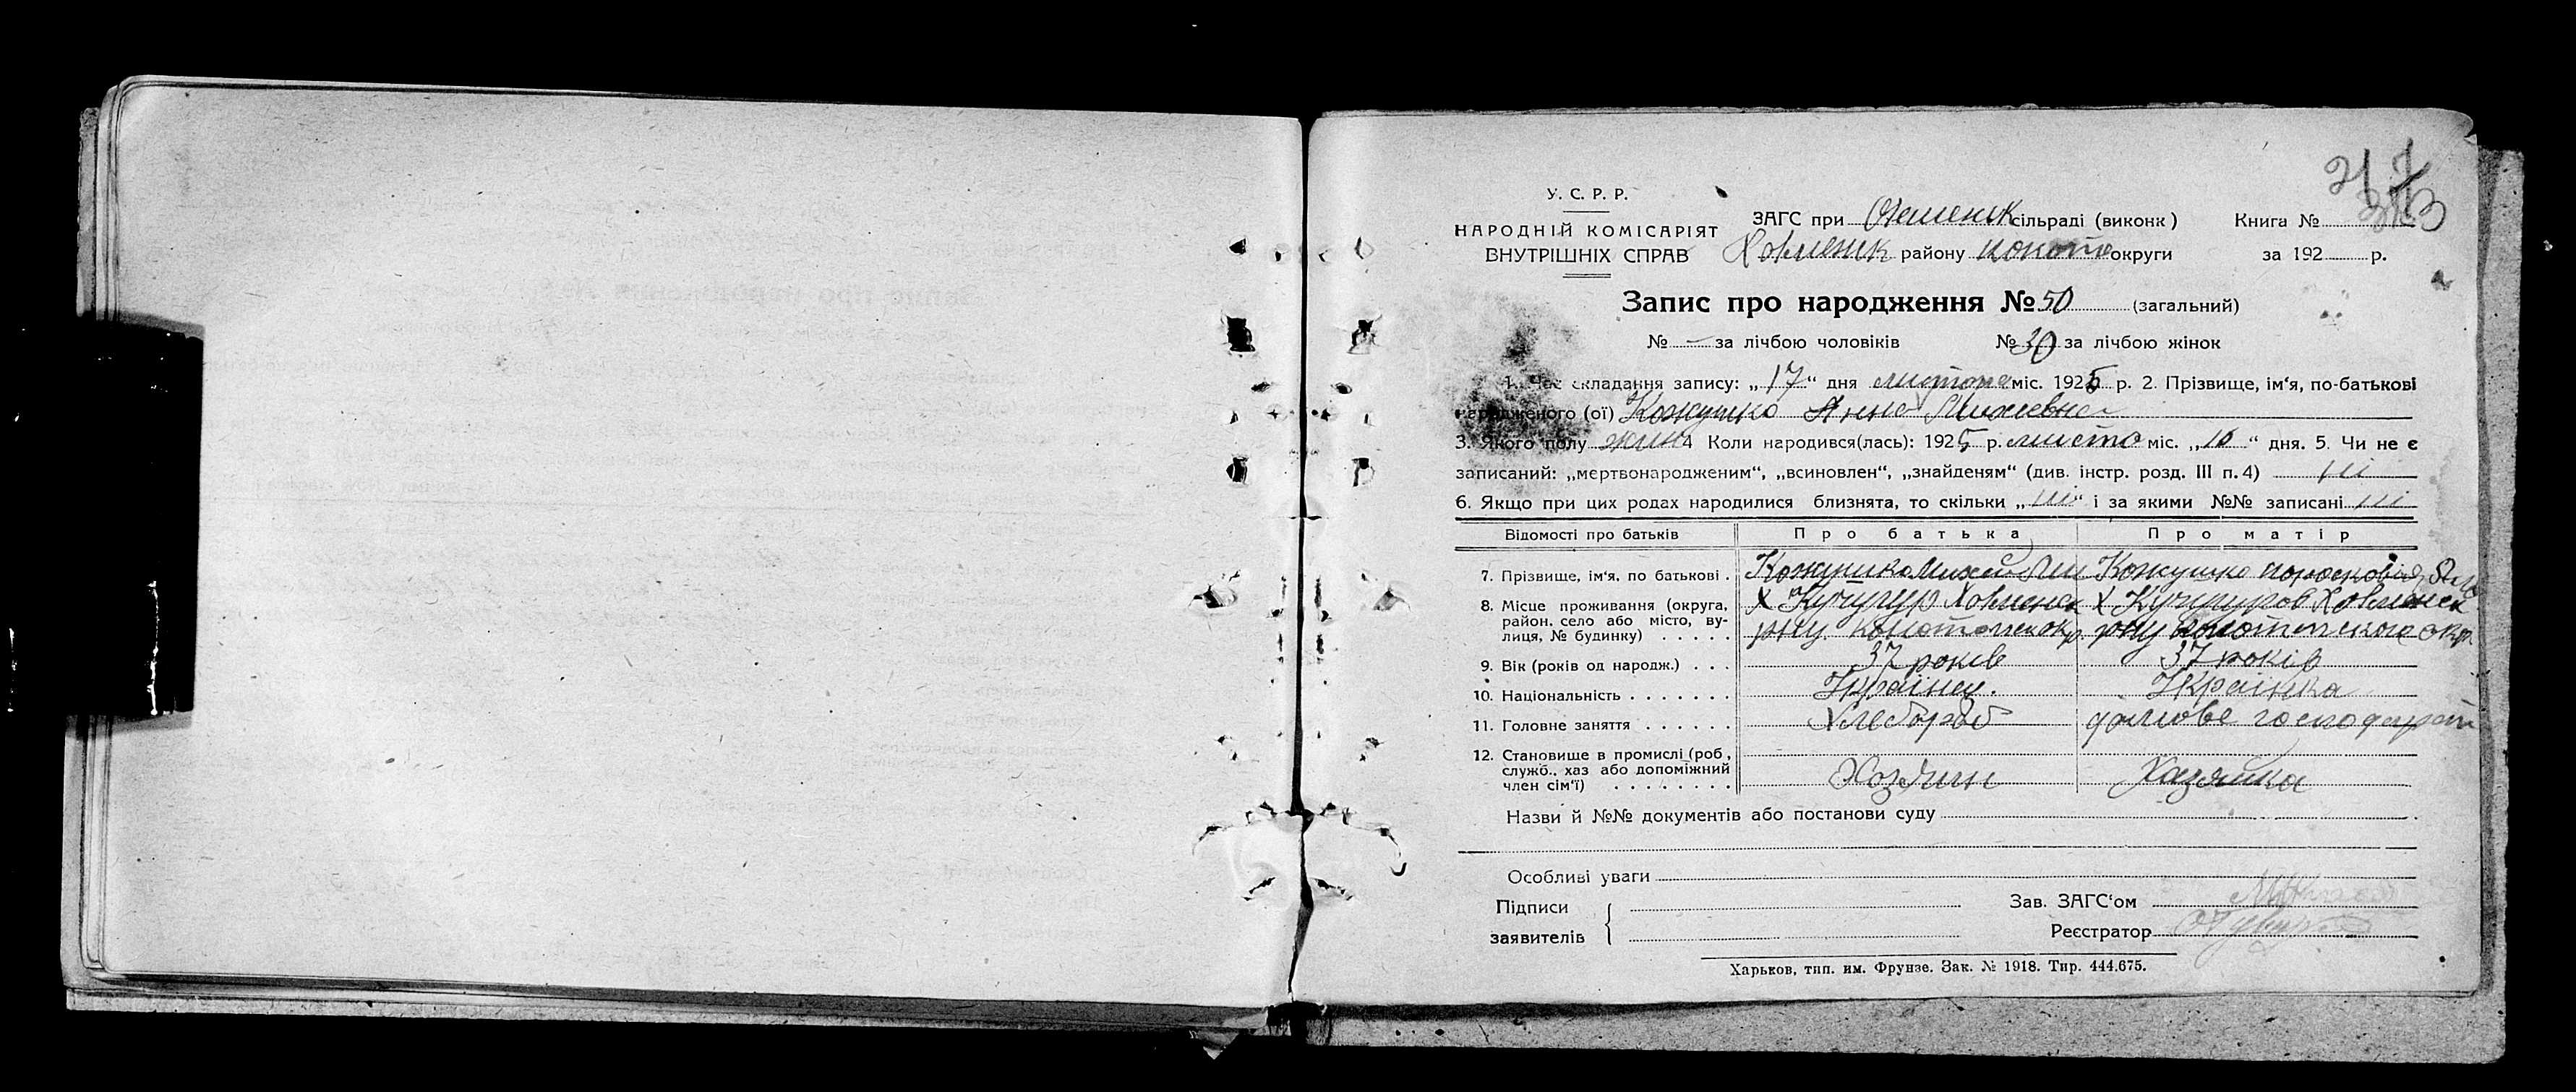 У. С. Р. Р.
НАРОДНІЙ КОМІСАРІЯТ
ВНУТРІШНІХ СПРАВ
ЗАГС при сільраді (виконк)
Книга №
Ховменк району коното округи
за 192 р.
Запис про народження № 50 (загальний)
№ — за лічбою чоловіків № 30 за лічбою жінок
1. Час складання запису: „17“ дня листопа міс. 1925 р. 2. Прізвище, ім‘я, по-батькові
народженого (ої) Кожушко Анна Михиевна
3. Якого полу жин 4 Коли народився(лась): 1925 р. листо міс. „16“ дня. 5. Чи не є
записаний: „мертвонародженим“, „всиновлен“, „знайденям“ (див. інстр. розд. III п. 4)
6. Якщо при цих родах народилися близнята, то скільки „ “ і за якими №№ записані
Відомості про батьків Про батька Про матір
7. Прізвище, ім‘я, по батькові . Кожушко Михей Кожушко
8. Місце проживання (округа, район, село або місто, вулиця, № будинку) . . . . . Х Кучугур Ховменск рну. Х Кучугуров Ховменск рну
9. Вік (років од народж.) . . . 37 років 37 років
10. Національність . . . . . . . Українец. Українка
11. Головне заняття . . . . . . Хлебороб домове господарст
12. Становище в промислі (роб., служб., хаз або допоміжний член сім‘ї) . . . . . . . . Хозяин Хазяйка
Назви й №№ документів або постанови суду
Особливі уваги
Підписи
заявителів
Зав. ЗАГС‘ом
Реєстратор
Харьков, тип. им. Фрунзе. Зак. № 1918. Тир. 444.675.